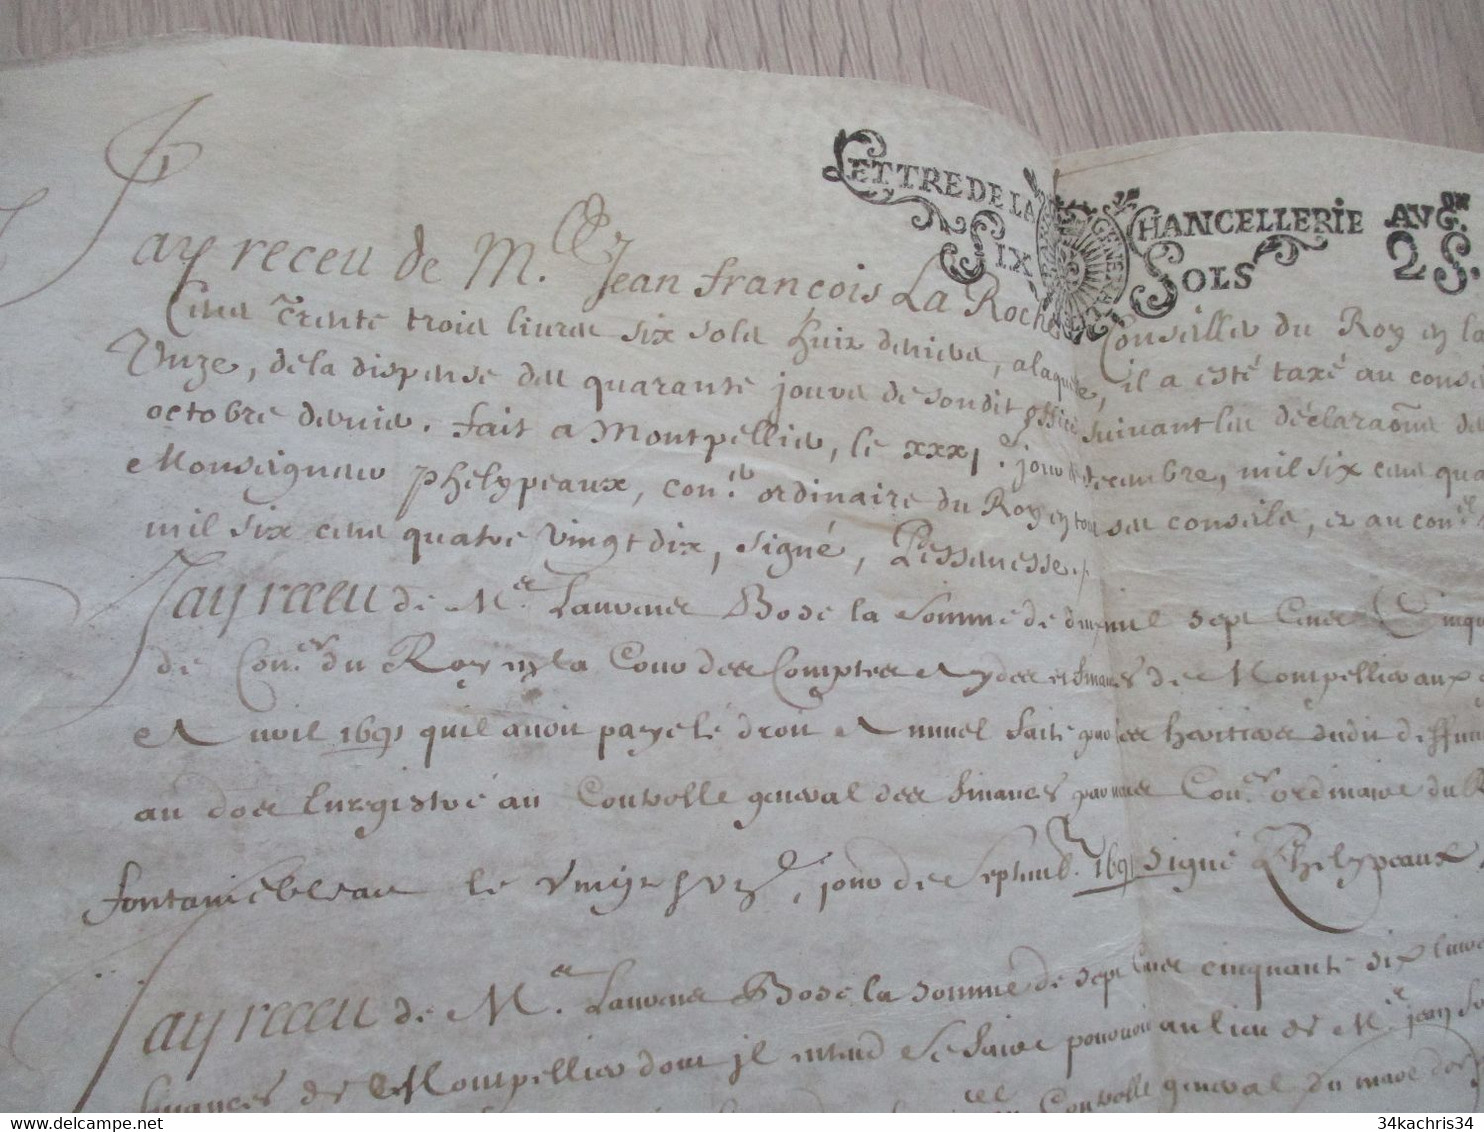 LETTRE DE LA CHANCELLERIE AVG.on
SIX SOLS 2 S.
Jay receu de M.e Jean françois La Roche Conseiller du Roy en la
Cens Trente trois livres six sols huit deniers, a laquelle, il a esté taxé au conse
Unze, de la dispense des quarante jours de sondit office suivant les déclaraõns de
octobre dernier. fait a Montpellier, le xxxj.e jour de decembre, mil six cens qua
Monseigneur phelypeaux, con.er ordinaire du Roy en tous ses conseils, et au con.el
mil six cens quatre vingt dix, signé, Pessanesse./.
Jay receu de M.e Laurens Bosc la Somme de dix mil sept Cens Cinqu
de Con.er du Roy en la Cour des Comptes Aydes et finances de Montpellier aux
Avril 1691 quil avoit payé le droit Annuel faite par les heritiers dudit deffun
au dos Enregistré au Controlle general des finances par nous Con.er ordinaire du R
fontainebleau le Vingt jour de Septemb. 1691 signé Phelypeaux
Jay receu de M.e Laurens Bosc la somme de sept Cens cinquante six livres
finances de Montpellier dont il entend Se faire pourvoir au lieu de M.e jean
Controlle general du marc dor
34kachris34